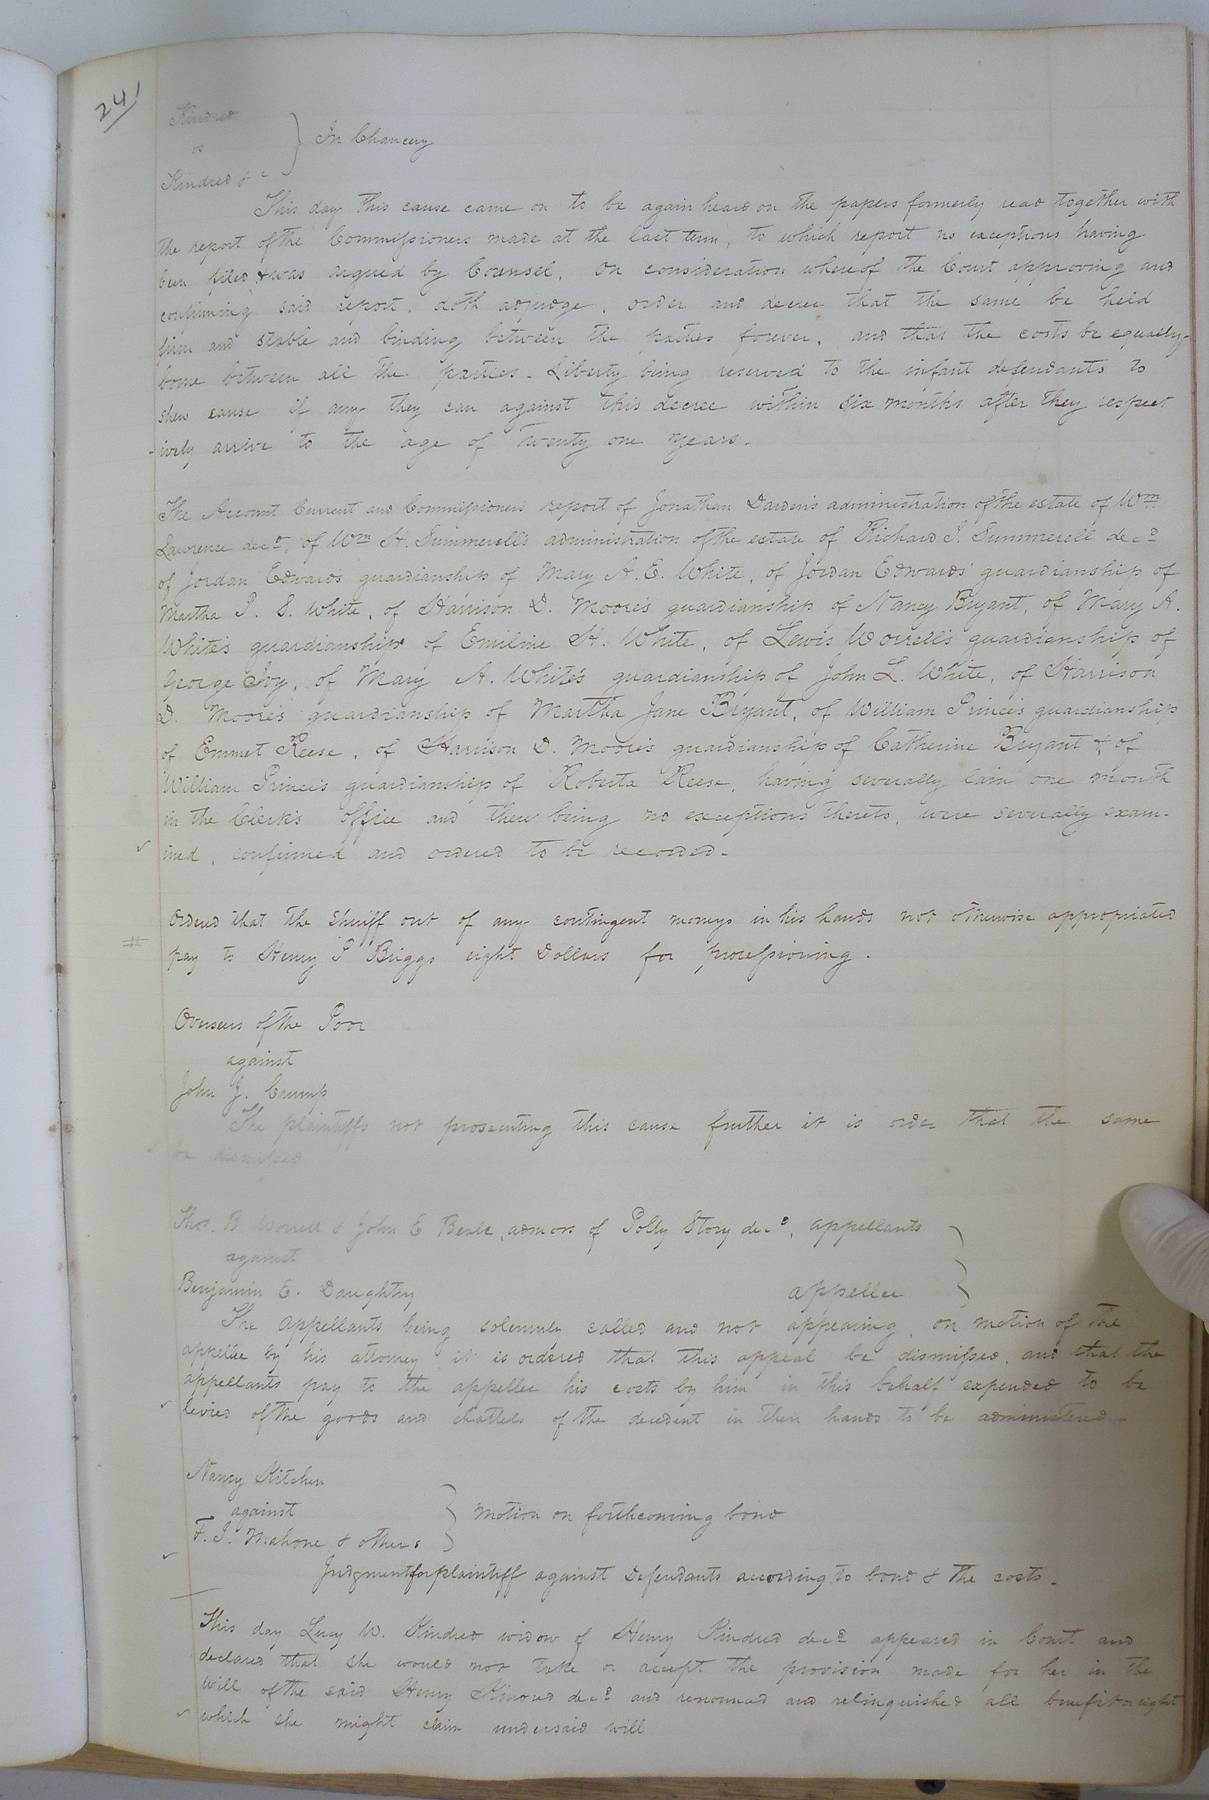 241
Kindred
vs
Kindred &c
In Chancery
This day this cause came on to be again heard on the papers formerly read together with
the report of the Commissioners made at the last term, to which report no exceptions having
been filed & was argued by Counsel. On consideration whereof the Court approving and
confirming said report, doth adjudge, order and decree that the same be held
firm and stable and binding between the parties forever, and that the costs be equally
borne between all the parties. Liberty being reserved to the infant defendants to
shew cause if any they can against this decree within six months after they respect
-ively arrive to the age of Twenty one years.
The Account Current and Commissioners report of Jonathan Darden's administration of the estate of Wm
Lawrence decd, of Wm H. Summerell's administration of the estate of Richard J. Summerell decd
of Jordan Edwards' guardianship of Mary A. E. White, of Jordan Edwards' guardianship of
Martha P. S. White, of Harrison D. Moore's guardianship of Nancy Bryant, of Mary A.
White's guardianship of Emiline H. White, of Lewis Worrell's guardianship of
George Ivy, of Mary A. White's guardianship of John L. White, of Harrison
D. Moore's guardianship of Martha Jane Bryant, of William Prince's guardianship
of Emmet Reese, of Harrison D. Moore's guardianship of Catherine Bryant & of
William Prince's guardianship of Roberta Reese, having severally lain one month
in the Clerk's office and there being no exceptions thereto, were severally exam-
ined, confirmed and ordered to be recorded.
Ordered that the Sheriff out of any contingent moneys in his hands not otherwise appropriated
pay to Henry P Briggs eight Dollars for processioning.
Overseers of the Poor
against
John J. Crump
The plaintiffs not prosecuting this cause further it is order that the same
be dismissed
Thos. B Worrell & John E Beale, admors of Polly Story decd, appellants
against
Benjamin E. Daughtry appellee
The appellants being solemnly called and not appearing, on motion of the
appellee by his attorney it is ordered that this appeal be dismissed, and that the
appellants pay to the appellee his costs by him in this behalf expended to be
levied of the goods and chattels of the decedent in their hands to be administered.
Nancy Kitchen
against
F. J. Mahone & others
Motion on forthcoming bond
Judgment for plaintiff against Defendants according to bond & the costs.
This day Lucy W. Kindred widow of Henry Kindred decd appeared in Court and
declared that she would not take or accept the provision made for her in the
will of the said Henry Kindred decd and renounced and relinquished all benefit or right
which she might claim under said will